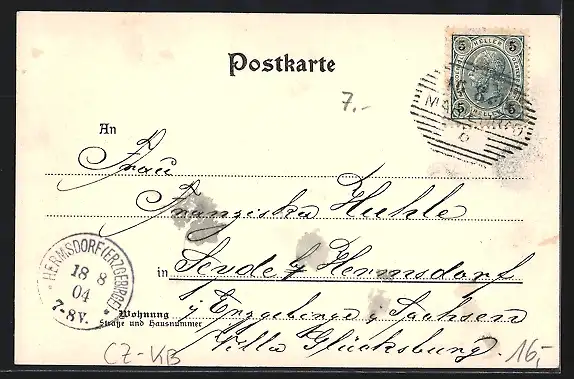 Postkarte
5 HELLER 5
7.-
An
Frau
Franziska Huhle
in Seyde b/ Hermsdorf
i/ Erzgebirge i/ Sachsen
Wohnung
Straße und Hausnummer
Villa Glücksburg.
HERMSDORF (ERZGEBIRGE)
18 8
04
7-8V.
CZ-KB
16,-